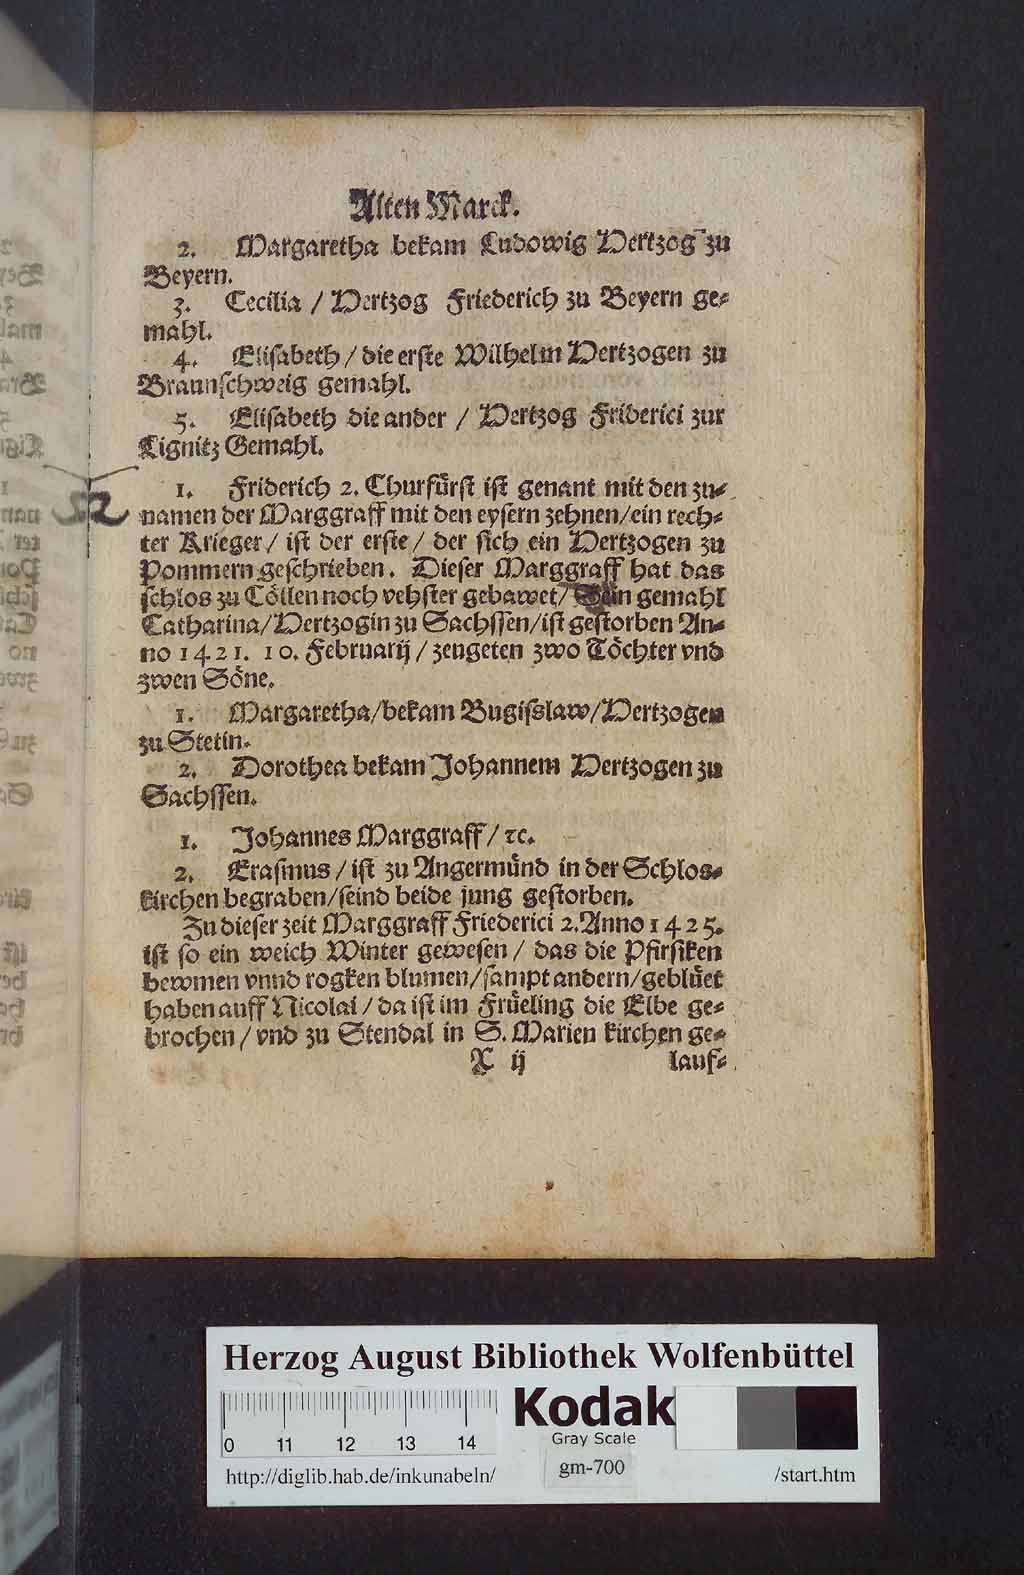 Alten Marck.
2. Margaretha bekam Ludowig Hertzog zu
Beyern.
3. Cecilia / Hertzog Friederich zu Beyern ge⸗
mahl.
4. Elisabeth / die erste Wilhelm Hertzogen zu
Braunschweig gemahl.
5. Elisabeth die ander / Hertzog Friderici zur
Lignitz Gemahl.
1. Friderich 2. Churfürst ist genant mit den zu⸗
namen der Marggraff mit den eysern zehnen/ein rech⸗
ter Krieger / ist der erste / der sich ein Hertzogen zu
Pommern geschrieben. Dieser Marggraff hat das
schlos zu Cöllen noch vehster gebawet/ Sein gemahl
Catharina/Hertzogin zu Sachssen/ist gestorben An⸗
no 1421. 10. Februarij / zeugeten zwo Töchter vnd
zwen Söne.
1. Margaretha/bekam Bugisslaw/Hertzogen
zu Stetin.
2. Dorothea bekam Johannem Hertzogen zu
Sachssen.
1. Johannes Marggraff / ꝛc.
2. Erasmus / ist zu Angermünd in der Schlos⸗
kirchen begraben/seind beide jung gestorben.
Zu dieser zeit Marggraff Friederici 2. Anno 1425.
ist so ein weich Winter gewesen / das die Pfirsiken
bewmen vnnd rogken blumen/sampt andern/geblüet
haben auff Nicolai / da ist im Früeling die Elbe ge⸗
brochen / vnd zu Stendal in S. Marien kirchen ge⸗
X ij lauf⸗
Herzog August Bibliothek Wolfenbüttel
Kodak
Gray Scale
0 11 12 13 14
gm-700
http://diglib.hab.de/inkunabeln/ /start.htm